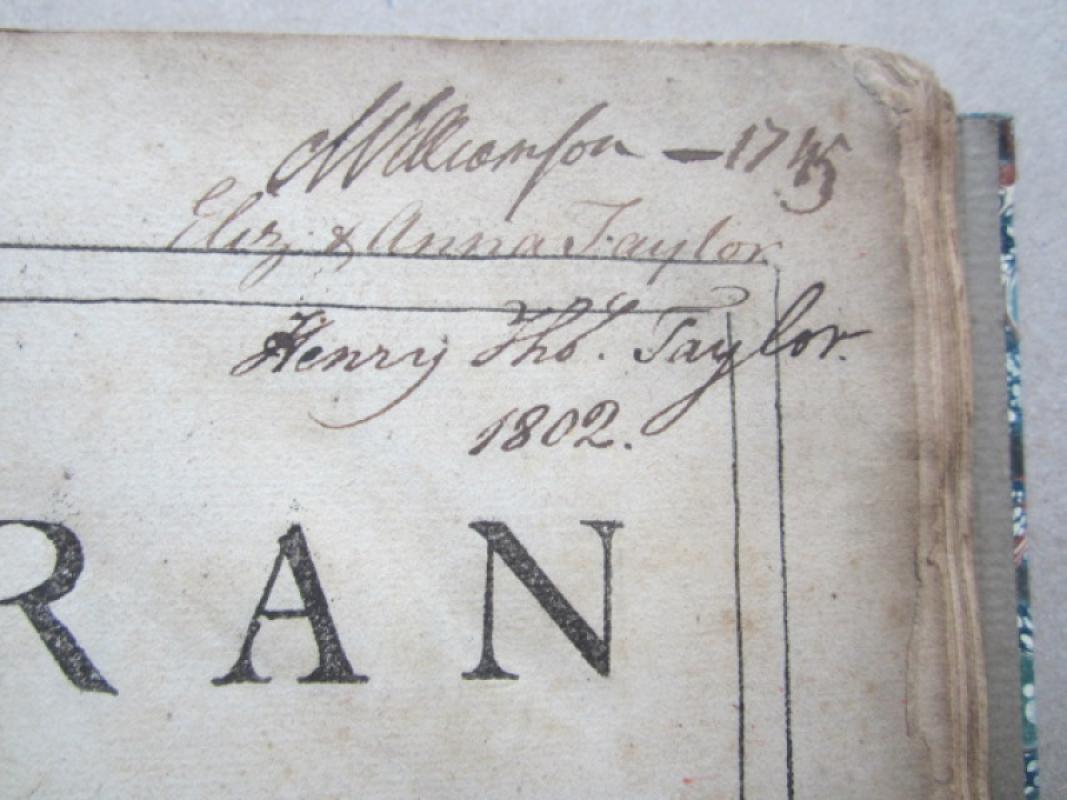 Williamson — 1745
Eliz & Anna Taylor
Henry Thos. Taylor.
1802.
RAN